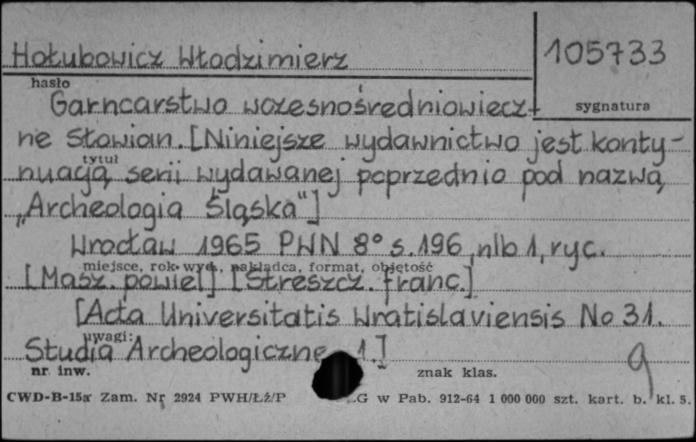 Hołubowicz Włodzimierz
105733
hasło
sygnatura
Garncarstwo wczesnośredniowiecz-
ne Słowian. [Niniejsze wydawnictwo jest konty-
tytuł
nuacją serii wydawanej poprzednio pod nazwą
„Archeologia Śląska"]
Wrocław 1965 PWN 8° s. 196, nlb 1, ryc.
miejsce, rok wyd., nakładca, format, objętość
[Masz. powiel] [Streszcz. franc.]
[Acta Universitatis Wratislaviensis No 31.
uwagi:
Studia Archeologiczne 1.]
nr inw.
znak klas.
9
CWD-B-15a Zam. Nr 2924 PWH/Łź/P G w Pab. 912-64 1 000 000 szt. kart. b. kl. 5.